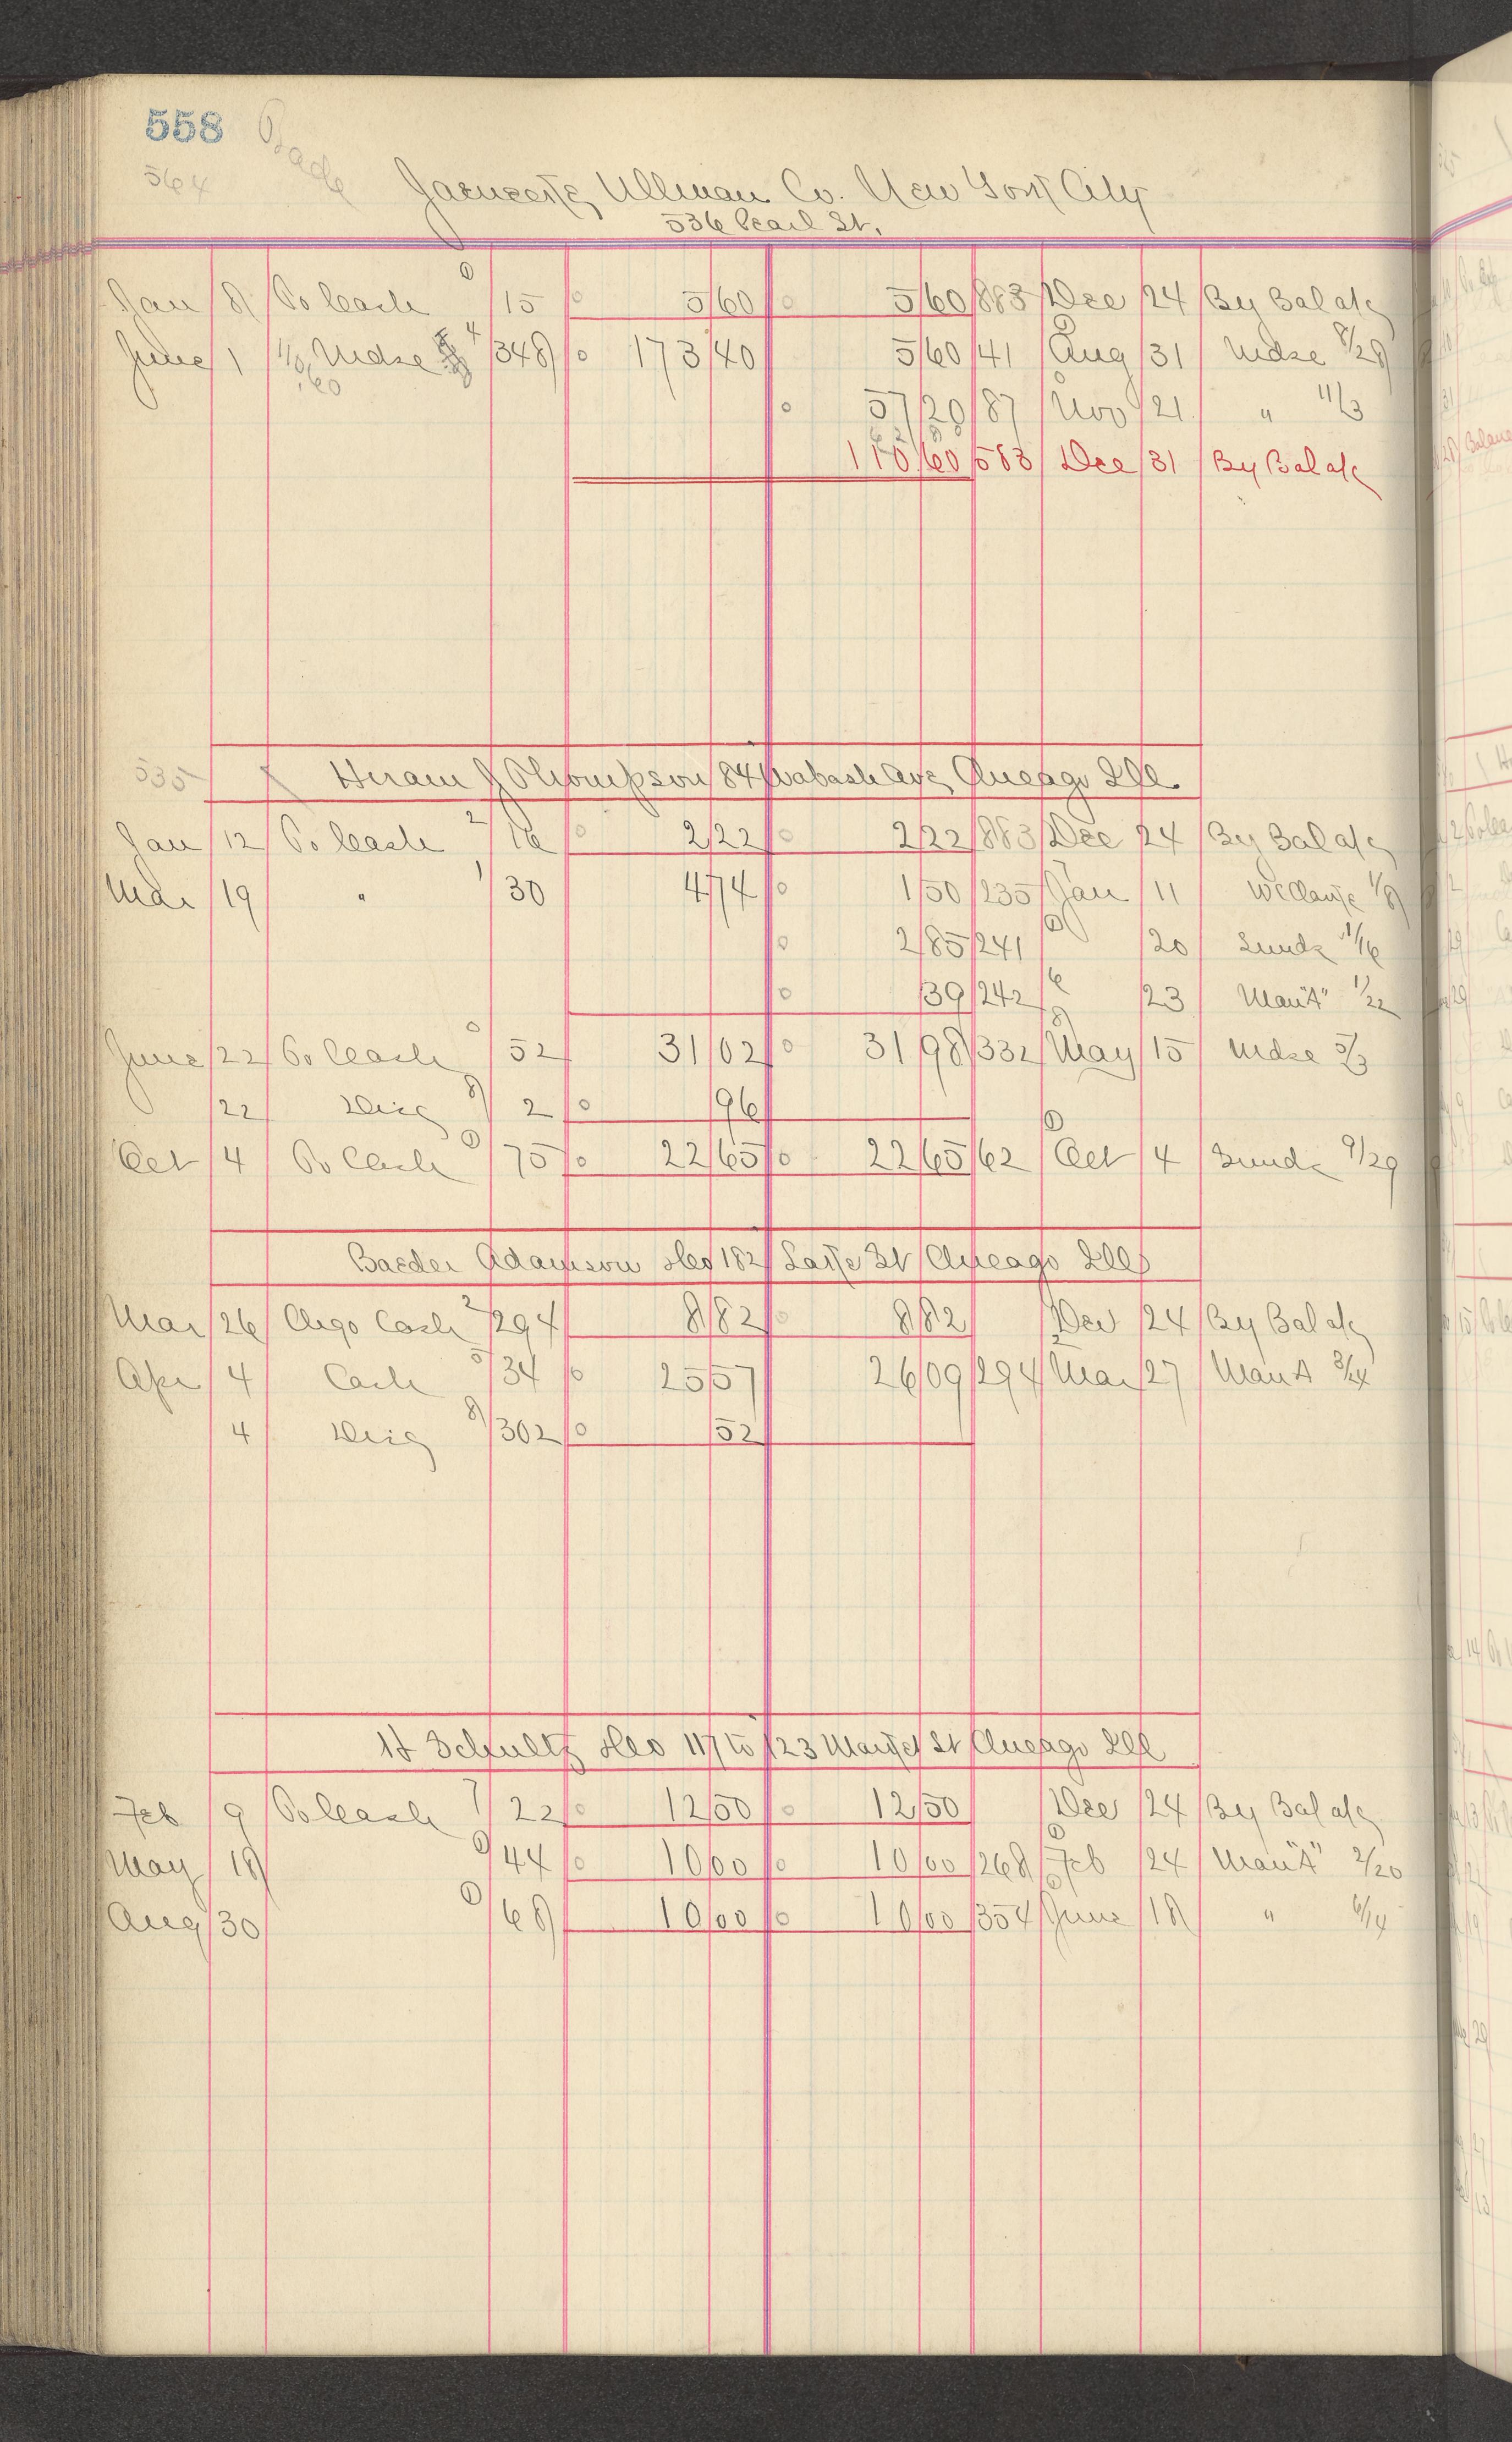 558
564
Jaeneste Ullman Co. New York City
536 Pearl St.
Jan 8 To Cash 15 5 60 5 60 883 Dec 24 By Bal a/c
June 1 Mdse 348 173 40 5 60 41 Aug 31 Mdse 8/28
57 20 87 Nov 21 " 11/3
110 60 583 Dec 31 By Bal a/c
535 Hiram J Thompson 84 Wabash Ave Chicago Ill.
Jan 12 To Cash 2 16 2 22 2 22 883 Dec 24 By Bal a/c
Mar 19 " 1 30 4 74 1 50 235 Jan 11 1/8
2 85 241 20 Sunds 1/16
39 242 6 23 Man "A" 1/22
June 22 To Cash 0 52 31 02 31 98 332 May 15 Mdse 5/3
22 8 2 96
Oct 4 To Cash 0 75 22 65 22 65 62 Oct 4 Sunds 9/29
Baeder Adamson & Co 182 Lake St Chicago Ills
Mar 26 Chgo Cash 2 294 8 82 8 82 Dec 24 By Bal a/c
Apr 4 Cash 5 34 25 57 26 09 294 Mar 27 Man A 3/24
4 8 302 52
H Schultz & Co 117 to 123 Market St Chicago Ill
Feb 9 To Cash 7 22 12 50 12 50 Dec 24 By Bal a/c
May 18 0 44 10 00 10 00 268 Feb 24 Man "A" 2/20
Aug 30 0 68 10 00 10 00 354 June 18 " 6/14